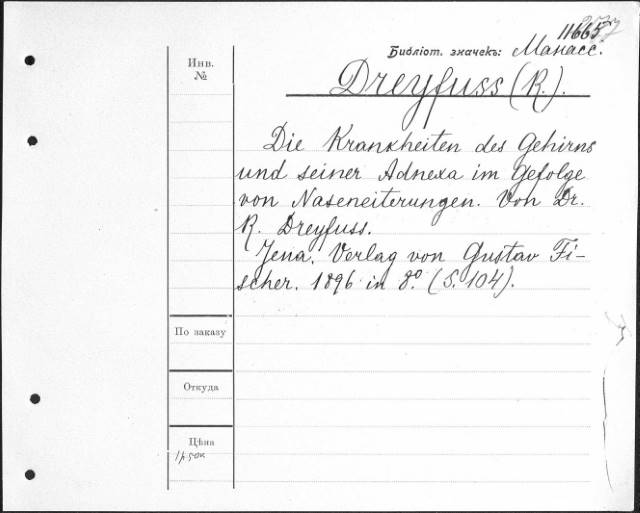 11665
Библіот. значекъ: Манасс.
Инв.
№
Dreyfuss (R.).
Die Krankheiten des Gehirns
und seiner Adnexa im Gefolge
von Naseneiterungen. Von Dr.
R. Dreyfuss.
Jena. Verlag von Gustav Fi-
scher. 1896 in 8º. (S. 104).
По заказу
Откуда
Цѣна
1 р 50 к